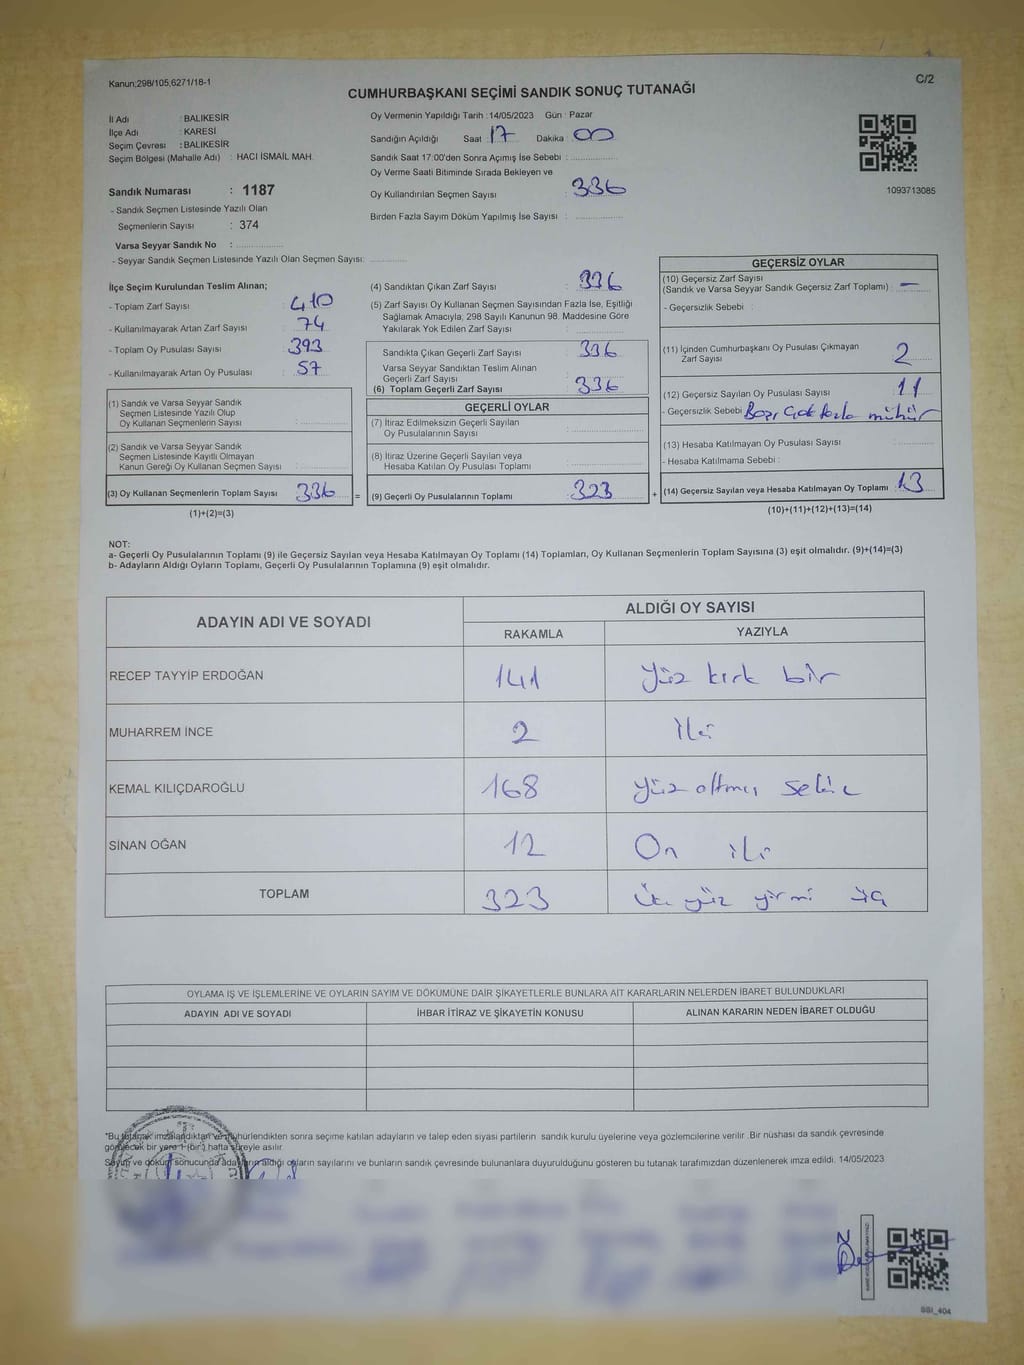 Kanun;298/105,6271/18-1
C/2
CUMHURBAŞKANI SEÇİMİ SANDIK SONUÇ TUTANAĞI
İl Adı : BALIKESİR
İlçe Adı : KARESİ
Seçim Çevresi : BALIKESİR
Seçim Bölgesi (Mahalle Adı) : HACI İSMAİL MAH.
Sandık Numarası : 1187
- Sandık Seçmen Listesinde Yazılı Olan
Seçmenlerin Sayısı : 374
Varsa Seyyar Sandık No :
- Seyyar Sandık Seçmen Listesinde Yazılı Olan Seçmen Sayısı:
Oy Vermenin Yapıldığı Tarih : 14/05/2023 Gün : Pazar
Sandığın Açıldığı Saat 17 Dakika 00
Sandık Saat 17:00'den Sonra Açımış İse Sebebi :
Oy Verme Saati Bitiminde Sırada Bekleyen ve
Oy Kullandırılan Seçmen Sayısı : 336
Birden Fazla Sayım Döküm Yapılmış İse Sayısı :
1093713085
İlçe Seçim Kurulundan Teslim Alınan;
- Toplam Zarf Sayısı : 410
- Kullanılmayarak Artan Zarf Sayısı : 74
- Toplam Oy Pusulası Sayısı : 393
- Kullanılmayarak Artan Oy Pusulası : 57
(1) Sandık ve Varsa Seyyar Sandık
Seçmen Listesinde Yazılı Olup
Oy Kullanan Seçmenlerin Sayısı :
(2) Sandık ve Varsa Seyyar Sandık
Seçmen Listesinde Kayıtlı Olmayan
Kanun Gereği Oy Kullanan Seçmen Sayısı :
(3) Oy Kullanan Seçmenlerin Toplam Sayısı : 336
(1)+(2)=(3)
=
(4) Sandıktan Çıkan Zarf Sayısı : 336
(5) Zarf Sayısı Oy Kullanan Seçmen Sayısından Fazla İse, Eşitliği
Sağlamak Amacıyla; 298 Sayılı Kanunun 98. Maddesine Göre
Yakılarak Yok Edilen Zarf Sayısı :
Sandıkta Çıkan Geçerli Zarf Sayısı : 336
Varsa Seyyar Sandıktan Teslim Alınan
Geçerli Zarf Sayısı :
(6) Toplam Geçerli Zarf Sayısı : 336
GEÇERLİ OYLAR
(7) İtiraz Edilmeksizin Geçerli Sayılan
Oy Pusulalarının Sayısı :
(8) İtiraz Üzerine Geçerli Sayılan veya
Hesaba Katılan Oy Pusulası Toplamı :
(9) Geçerli Oy Pusulalarının Toplamı : 323
+
GEÇERSİZ OYLAR
(10) Geçersiz Zarf Sayısı
(Sandık ve Varsa Seyyar Sandık Geçersiz Zarf Toplamı) : —
- Geçersizlik Sebebi :
(11) İçinden Cumhurbaşkanı Oy Pusulası Çıkmayan
Zarf Sayısı : 2
(12) Geçersiz Sayılan Oy Pusulası Sayısı : 11
- Geçersizlik Sebebi : Boş, Çok fazla mühür
(13) Hesaba Katılmayan Oy Pusulası Sayısı :
- Hesaba Katılmama Sebebi :
(14) Geçersiz Sayılan veya Hesaba Katılmayan Oy Toplamı : 13
(10)+(11)+(12)+(13)=(14)
NOT:
a- Geçerli Oy Pusulalarının Toplamı (9) ile Geçersiz Sayılan veya Hesaba Katılmayan Oy Toplamı (14) Toplamları, Oy Kullanan Seçmenlerin Toplam Sayısına (3) eşit olmalıdır. (9)+(14)=(3)
b- Adayların Aldığı Oyların Toplamı, Geçerli Oy Pusulalarının Toplamına (9) eşit olmalıdır.
ADAYIN ADI VE SOYADI
ALDIĞI OY SAYISI
RAKAMLA YAZIYLA
RECEP TAYYİP ERDOĞAN 141 Yüz kırk bir
MUHARREM İNCE 2 İki
KEMAL KILIÇDAROĞLU 168 Yüz altmış sekiz
SİNAN OĞAN 12 On iki
TOPLAM 323 Üç yüz yirmi üç
OYLAMA İŞ VE İŞLEMLERİNE VE OYLARIN SAYIM VE DÖKÜMÜNE DAİR ŞİKAYETLERLE BUNLARA AİT KARARLARIN NELERDEN İBARET BULUNDUKLARI
ADAYIN ADI VE SOYADI İHBAR İTİRAZ VE ŞİKAYETİN KONUSU ALINAN KARARIN NEDEN İBARET OLDUĞU
*Bu tutanak imzalandıktan ve mühürlendikten sonra seçime katılan adayların ve talep eden siyasi partilerin sandık kurulu üyelerine veya gözlemcilerine verilir. Bir nüshası da sandık çevresinde
görülecek bir yere 1 (bir) hafta süreyle asılır.
Sayım ve döküm sonucunda adayların aldığı oyların sayılarını ve bunların sandık çevresinde bulunanlara duyurulduğunu gösteren bu tutanak tarafımızdan düzenlenerek imza edildi. 14/05/2023
SSI_404